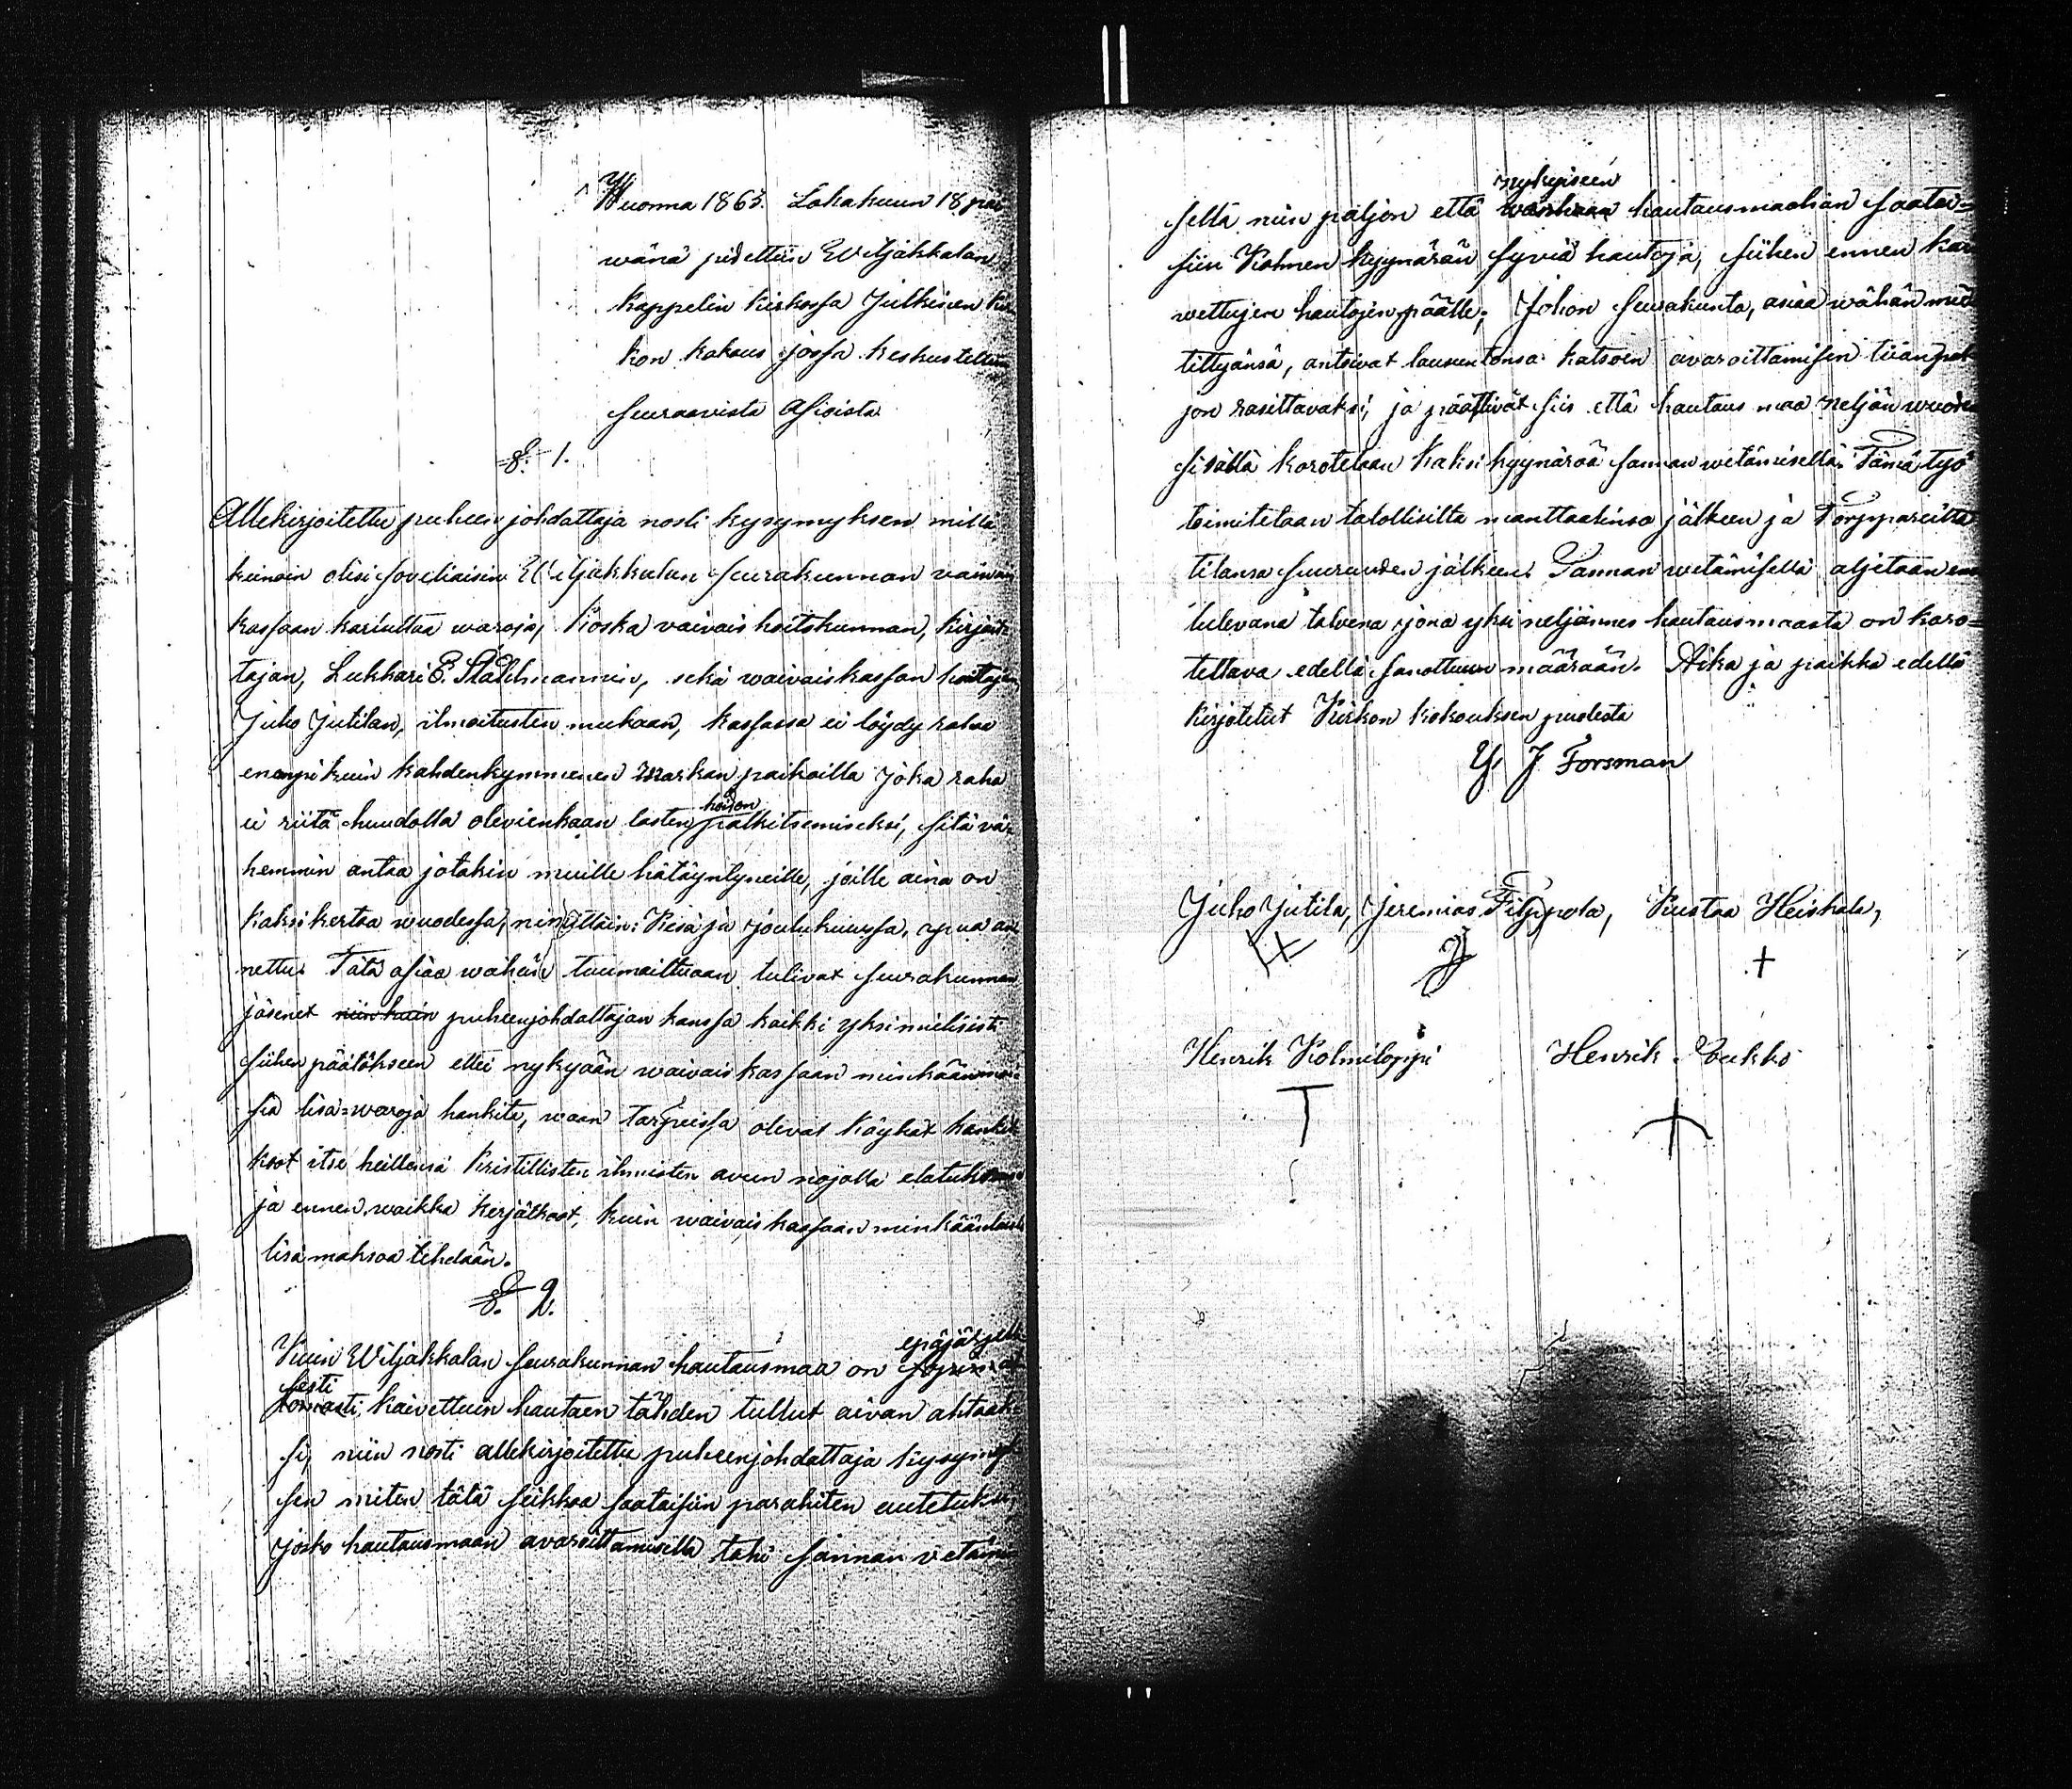 Wuonna 1863. Lokakuun 18 päi
wänä pidettiin Wiljakkalan
kappelin kirkossa Julkinen kir
kon kokous jossa keskusteltiin
seuraavista asioista
§. 1.
Allekirjoitettu puheen johdattaja nosti kysymyksen millä
keinoin olisi soveliaisin Wiljakkalan seurakunnan vaivais
kassaan kartuttaa waroja, koska vaivais hoitokunnan, kirjoit
tajan, Lukkari E. Ståhlmannin, sekä waivaiskassan hoitajan
Juho Jutilan, ilmoitusten mukaan, kassassa ei löydy rahaa
enempi kuin kahdenkymmenen markan paikoilla joka raha
hoidon
ei riitä huudolla olevienkaan lasten palkitsemiseksi, sitä vä-
hemmin antaa jotakin muille hätäyntyneille, joille aina on
kaksi kertaa wuodessa, nimittäin: Kesä ja joulukuussa, apua an
nettu. Tätä asiaa wähän tuumailtuaan tulivat seurakunnan
jäsenet niinkuin puheenjohdattajan kanssa kaikki yksimielisesti
siihen päätökseen ettei nykyään waivais kassaan minkäänmoi
sia lisä-waroja hankita, waan tarpeissa olevat köyhät hankki
koot itse heillensä kristillisten ihmisten avun nojalla elatuksensa
ja ennen waikka kerjätkööt, kuin waivais kassaan minkäänlaista
lisä maksoa tehdään.
§. 2.
epäjärjelli
Kuin Wiljakkalan seurakunnan hautausmaa on
sesti
kaivettuin hautaen tähden tullut aivan ahtaak
si, niin nosti allekirjoitettu puheenjohdattaja kysymyk
sen miten tätä seikkaa saataisiin parahiten autetuksi,
josko hautausmaan avaroittamisella tahi sannan vetämi
nykyiseen
sellä niin paljon että wanhaan hautausmaahan saatai-
siin Kolmen kyynärän syviä hautoja, siihen ennen kai
wettujen hautojen päälle; Johon seurakunta, asiaa wähän miet
tittyänsä, antoivat lausuntonsa: katsoen avaroittamisen liian pal
jon rasittavaksi, ja päättivät siis että hautaus maa neljän wuoden
sisällä korotetaan kaksi kyynärää sannan wetämisellä. Tämä työ
toimitetaan talollisilta manttaalinsa jälkeen ja Torppareilta
tilansa suuruuden jälkeen. Sannan wetämisellä aljetaan ensi
tulevana talvena jona yksi neljännes hautausmaasta on koro-
tettava edellä sanottuun määrään. Aika ja paikka edellä
kirjotetut Kirkon kokouksen puolesta
Y. J Forsman
Juho Jutila, Jeremias Filppola, Kustaa Heiskala,
Henrik Kolmiloppi Henrik Poukko